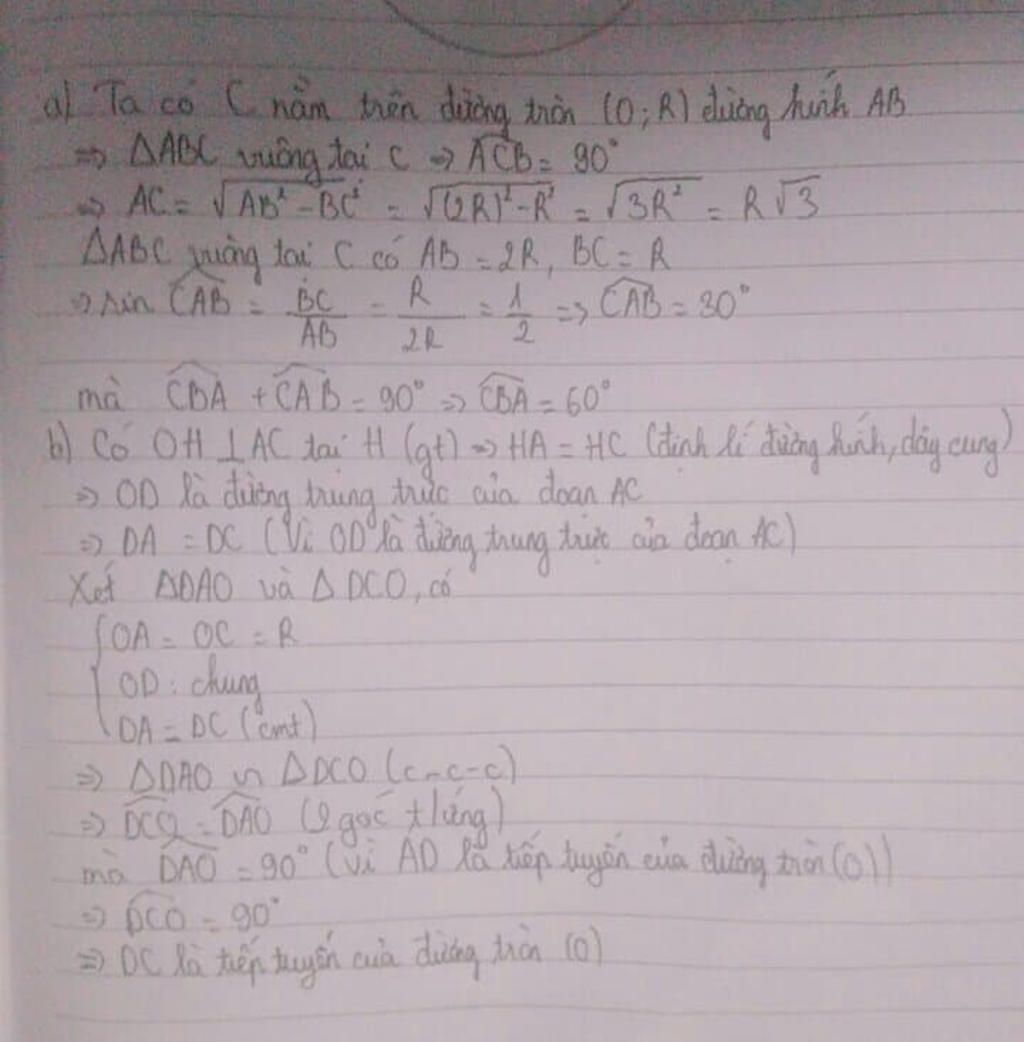 a) Ta có C nằm trên đường tròn (O; R) đường kính AB
=> ΔABC vuông tại C => \widehat{ACB} = 90°
=> AC = √(AB² - BC²) = √((2R)² - R²) = √(3R²) = R√3
ΔABC vuông tại C có AB = 2R, BC = R
=> sin \widehat{CAB} = BC/AB = R/2R = 1/2 => \widehat{CAB} = 30°
mà \widehat{CBA} + \widehat{CAB} = 90° => \widehat{CBA} = 60°
b) Có OH ⊥ AC tại H (gt) => HA = HC (định lí đường kính, dây cung)
=> OD là đường trung trực của đoạn AC
=> DA = DC (Vì OD là đường trung trực của đoạn AC)
Xét ΔDAO và ΔDCO, có
{ OA = OC = R
OD : chung
DA = DC (cmt)
=> ΔDAO ∽ ΔDCO (c-c-c)
=> \widehat{DCO} = \widehat{DAO} (2 góc t/ứng)
mà \widehat{DAO} = 90° (Vì AD là tiếp tuyến của đường tròn (O))
=> \widehat{DCO} = 90°
=> DC là tiếp tuyến của đường tròn (O)